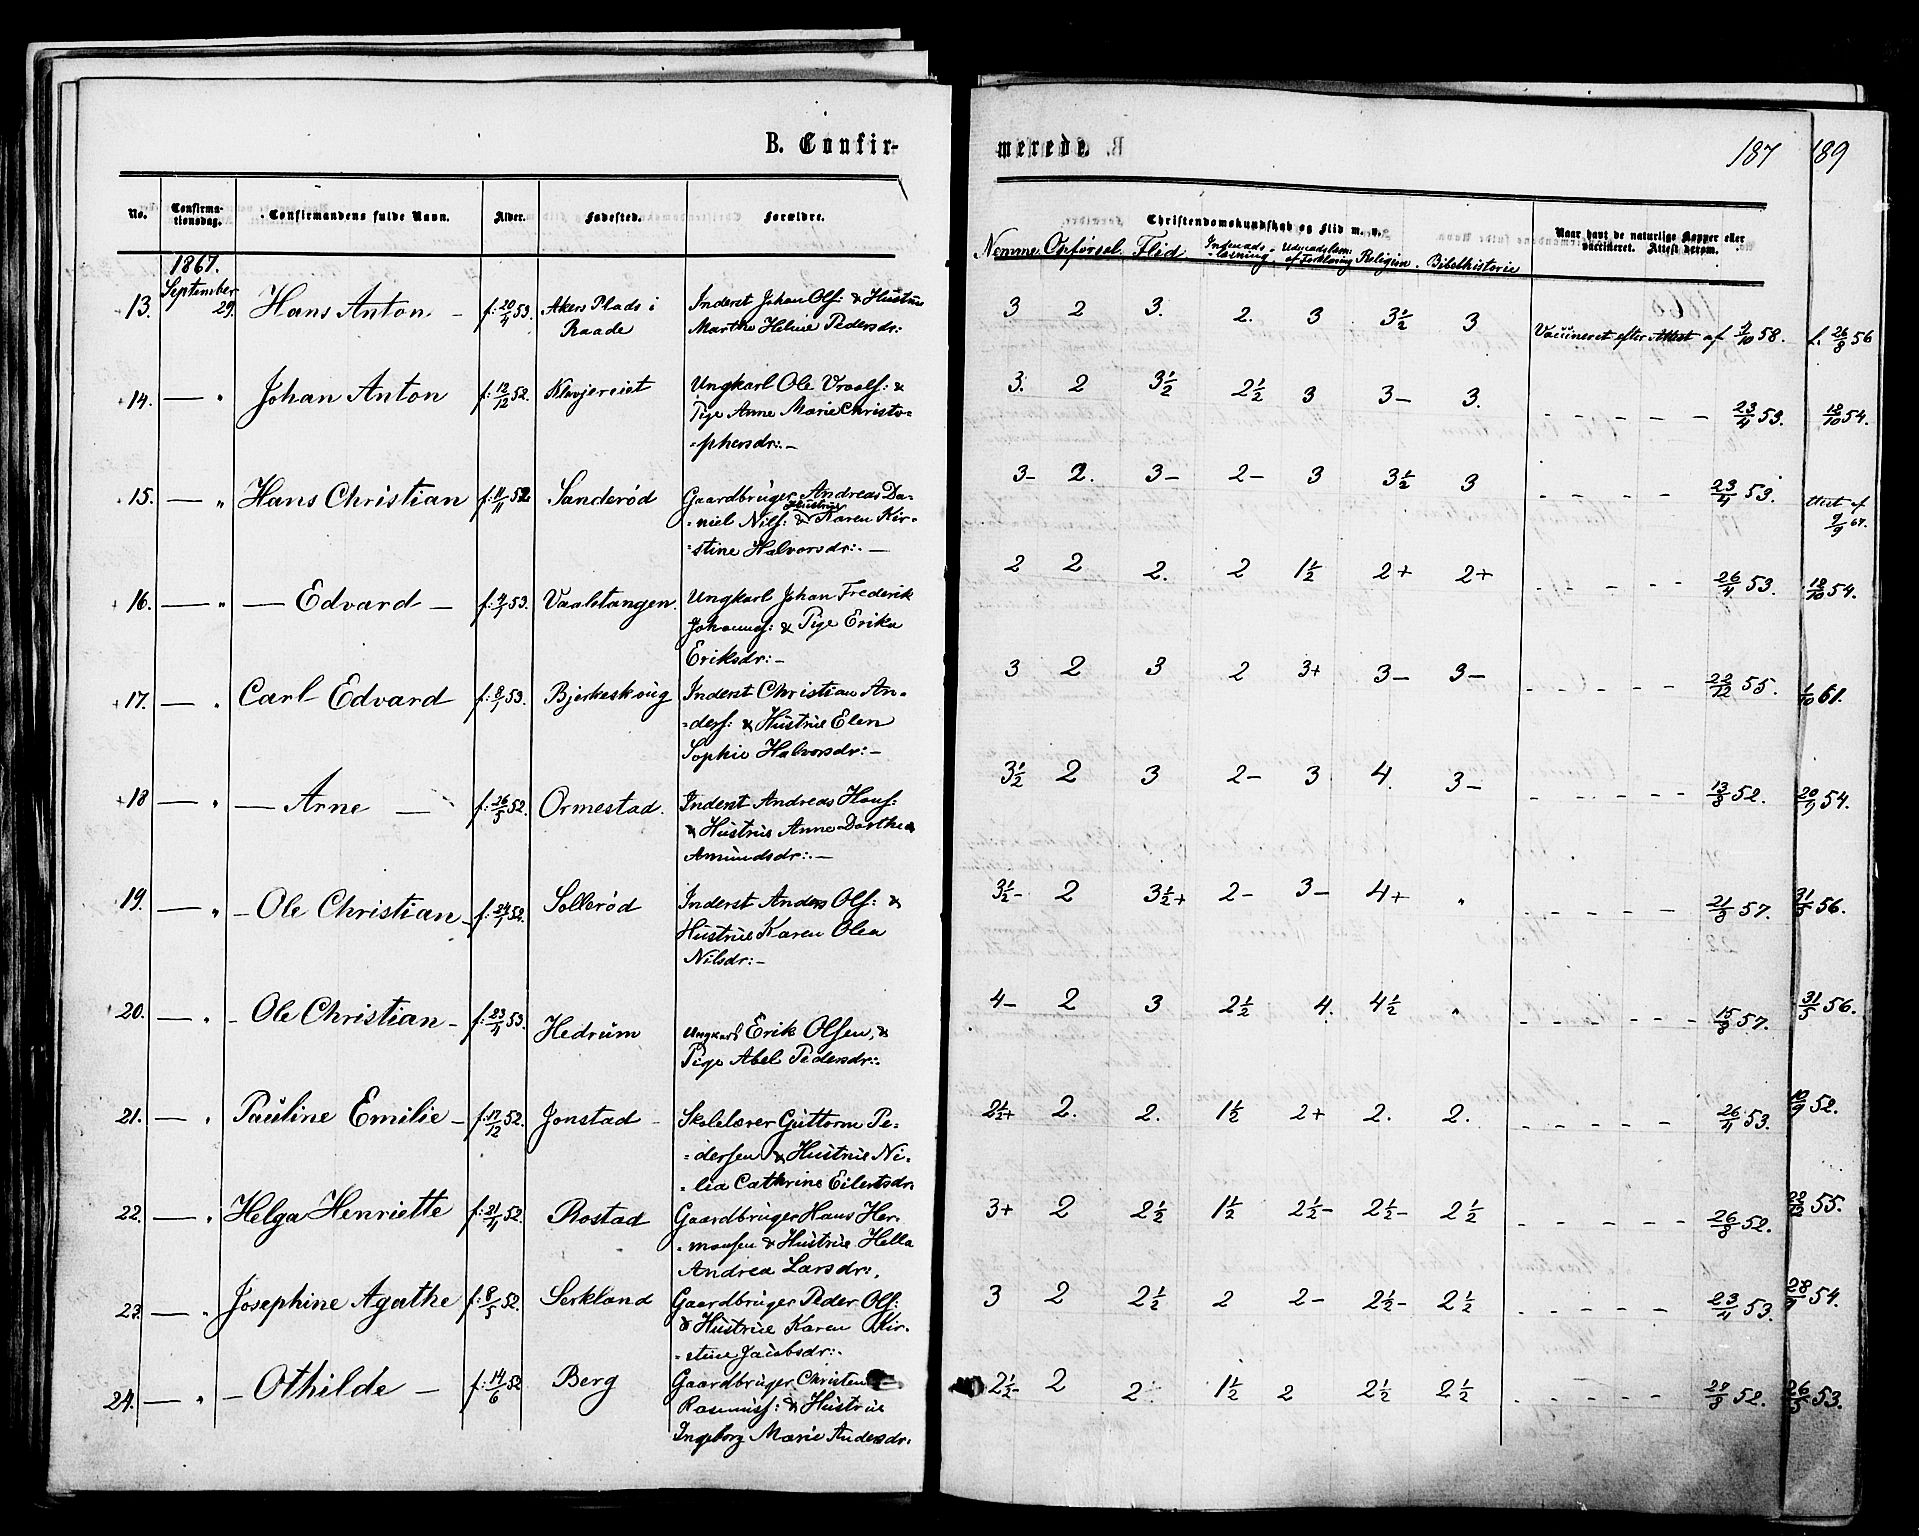 B. Confir-
merede.
187
189
No.
Confirma-
tionsdag.
Confirmandens fulde Navn.
Alder.
Fødested.
Forældre.
Christendomskundskab og Flid m. v.
Nemme Opførsel Flid Indenads-læsning Udenadslæsn. af Forklaring Religion Bibelhistorie
Naar havt de naturlige Kopper eller
vaccineret. Attest derom.
1867.
September
13. 29. Hans Anton – f: 20/4 53. Akers Plads i Inderst Johan Ols: & Hustrue
Raade Marthe Helene Pedersdr:
3 2 3. 2. 3 3½ 3 Vaccineret efter Attest af 9/10 58.
f. 26/8 56
14. — " Johan Anton f: 12/12 52. Klovjereiet Ungkarl Ole Vraals: &
Pige Anne Marie Christo-
=phersdr: –
3. 2 3½ 2½ 3 3– 3. – – – – – 23/4 53.
18/10 54.
15. — " Hans Christian f: 11/11 52 Sanderød Gaardbruger Andreas Da-
=niel Nils: & Hustrue Karen Kir-
=stine Halvorsdr: –
3– 2. 3– 2– 3 3½ 3 – – – – 23/4 53.
Attest af
9/9 67.
16. — " — Edvard — f: 4/1 53. Vaaletangen. Ungkarl Johan Frederik
Johannes: & Pige Erika
Eriksdr: –
2 2 2. 2 1½ 2+ 2+ – – – – 26/4 53.
18/10 54.
17. — " Carl Edvard f: 8/1 53. Bjerkeskoug Inderst Christian An-
=ders: & Hustrue Elen
Sophie Halvorsdr: –
3 2 3 2 3+ 3– 3– – – – – 22/12 55.
1/10 61.
18 — " — Arne — f: 26/5 52. Ormestad. Inderst Andreas Hans:
& Hustrue Anne Dorthea
Amundsdr: –
3½ 2 3 2– 3 4. 3– – – – – – 13/8 52.
20/9 54.
19. — " – Ole Christian – f: 24/1 52. Sollerød Inderst Anders Ols: &
Hustrue Karen Olea
Nilsdr: –
3½– 2 3½+ 2– 3– 4+ " – – – – 21/8 57.
31/5 56.
20. — " – Ole Christian – f: 23/4 53. Hedrum Ungkarl Erik Olsen, &
Pige Abel Pedersdr:
4– 2 3 2½ 4. 4½ " – – – – 15/8 57.
31/5 56.
21. — " Pauline Emilie – f: 17/12 52. Jonstad – Skolelærer Guttorm Pe-
=dersen & Hustrue Ni-
=lea Cathrine Eilertsdr:
2½+ 2. 2. 1½ 2+ 2. 2. – – – – – 26/4 53.
12/9 52.
22. — " Helga Henriette f: 21/4 52. Rostad Gaardbruger Hans Her-
=mansen & Hustrue Hella
Andrea Larsdr:.
3+ 2 2½ 1½ 2½– 2½– 2½ – – – – – 26/8 52.
22/12 55.
23. — " Josephine Agathe f: 8/5 52. Serkland Gaardbruger Peder Ols:
& Hustrue Karen Kir-
=stine Jacobsdr:.
3 2 2½ 2 2– 2½– 2½ – – – – 23/4 53.
28/9 54.
24. — " – Othilde – f: 14/6 52 Berg Gaardbruger Christen
Rasmuss: & Hustrue
Ingeborg Marie Andersdr:
2½– 2 2. 1½ 2 2½ 2½ – – – – – 28/8 52.
26/5 53.